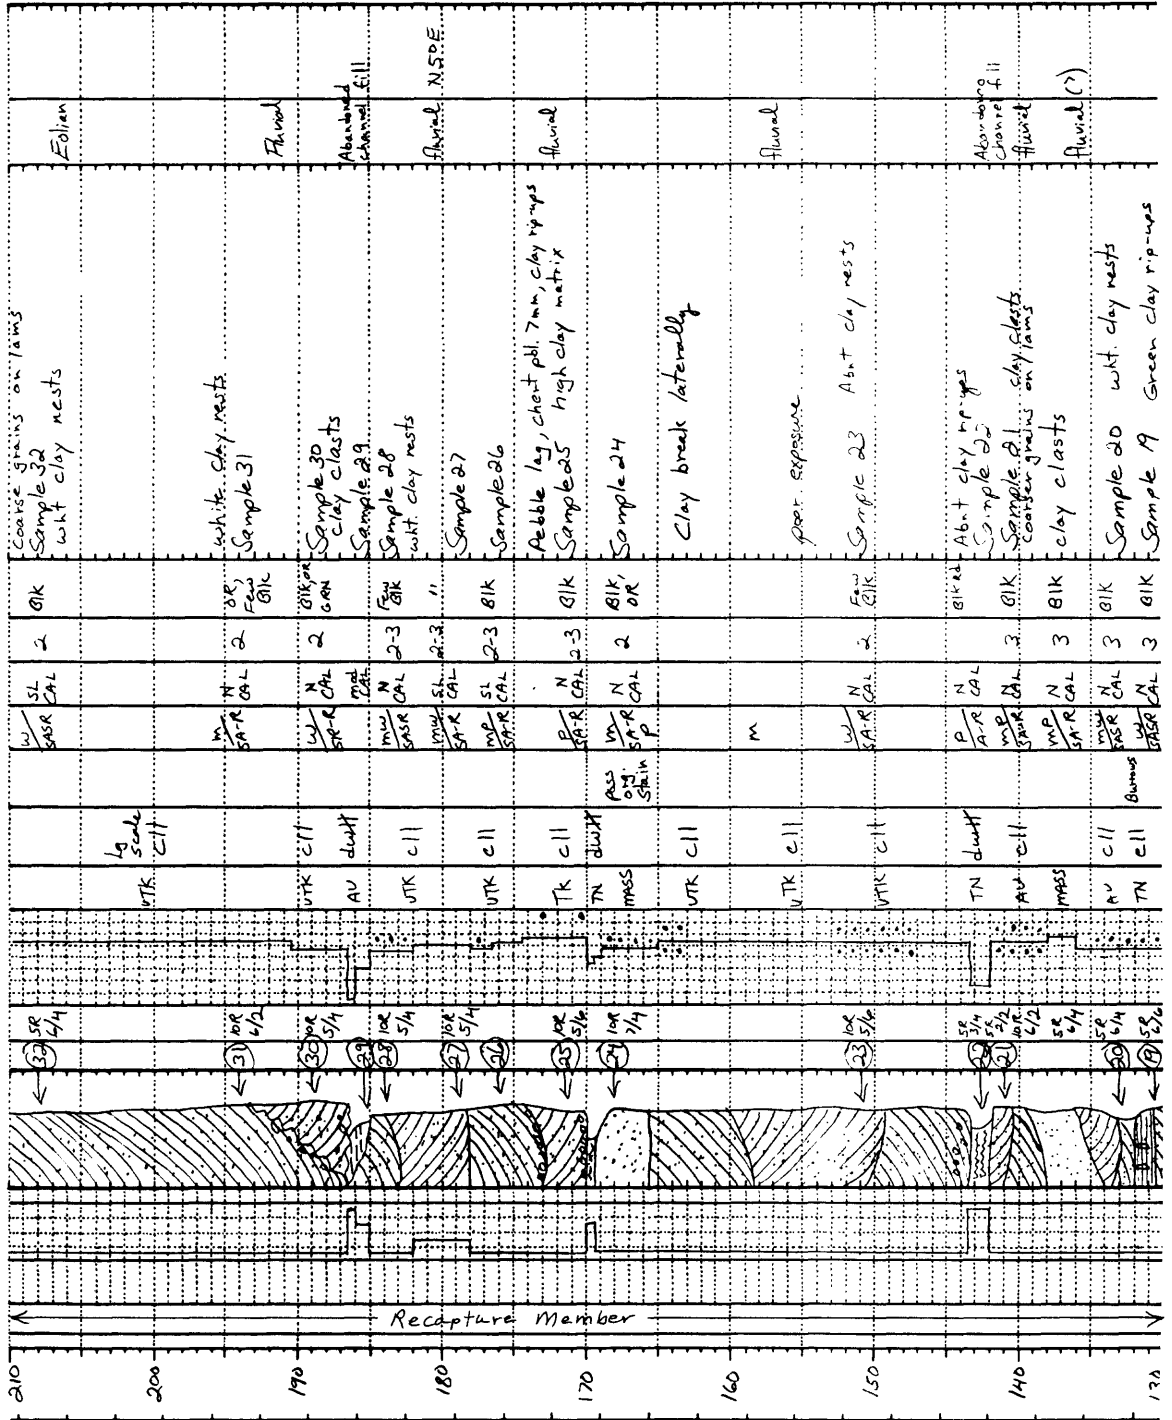 Eolian
Fluvial
Abandoned
channel fill
fluvial N50E
fluvial
fluvial
channel fill
fluvial
fluvial (?)
Coarse grains on lams
Sample 32
wht clay nests
white clay nests
Sample 31
Sample 30
clay clasts
Sample 29
Sample 28
wht. clay nests
Sample 27
Sample 26
Pebble lag, chert pbl. 7mm, clay rip-ups
Sample 25 high clay matrix
Sample 24
Clay break laterally
poor exposure
Sample 23 Abnt clay nests
Abnt clay rip-ups
Sample 22
Sample 21 clay clasts
coarser grains on lams
clay clasts
Sample 20 wht. clay nests
Sample 19 Green clay rip-ups
Blk
OR,
Few
Blk
Blk, OR
GRN
Few
Blk
"
Blk
Blk
Blk,
OR
Few
Blk
Blk rd
Blk
Blk
Blk
Blk
2
2
2
2-3
2-3
2-3
2-3
2
2
3
3
3
3
SL
CAL
N
CAL
N
CAL
mod
CAL
N
CAL
SL
CAL
SL
CAL
N
CAL
N
CAL
N
CAL
N
CAL
N
CAL
N
CAL
N
CAL
N
CAL
W
SASR
m
SA-R
W
SR-R
mw
SASR
mw
SA-R
mp
SA-R
P
SA-R
m
SA-R
P
M
W
SA-R
P
A-R
mp
SA-R
mp
SA-R
mw
SASR
W
SASR
poss
org.
Stain
Burrows
Lg
scale
cll
cll
dwtt
cll
cll
cll
dwtt
cll
cll
cll
dwtt
cll
cll
cll
VTK
VTK
AV
VTK
VTK
TK
TN
MASS
VTK
VTK
VTK
TN
AV
MASS
AV
TN
5R
6/4
10R
6/2
10R
5/4
10R
5/4
10R
5/4
10R
5/6
10R
7/4
10R
5/6
5R
3/4
5R
2/2
10R
6/2
5R
6/4
5R
6/4
5R
6/6
32
31
30
29
28
27
26
25
24
23
22
21
20
19
Recapture Member
210
200
190
180
170
160
150
140
130